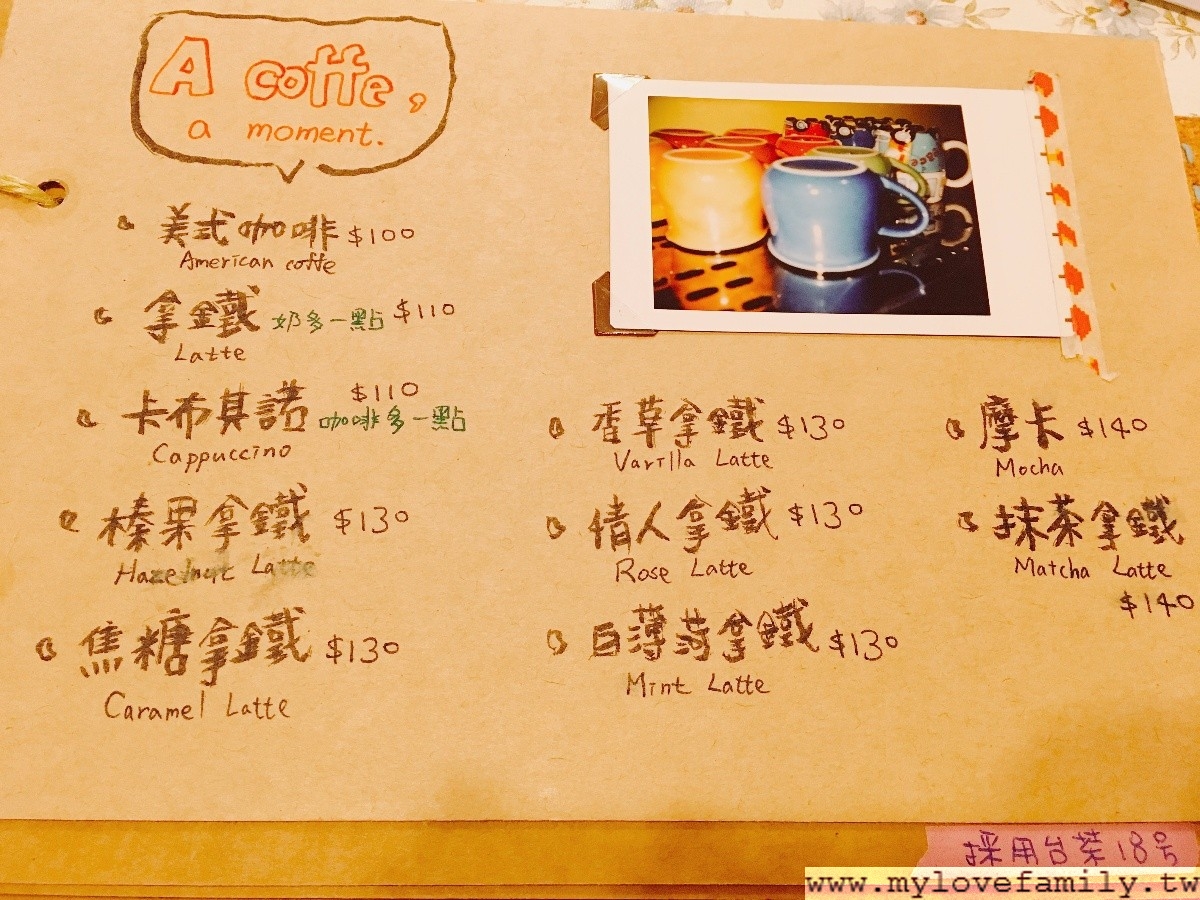 A coffe,
a moment.
美式咖啡 $100
American coffe
拿鐵 奶多一點 $110
Latte
卡布其諾 $110 咖啡多一點
Cappuccino
榛果拿鐵 $130
Hazelnut Latte
焦糖拿鐵 $130
Caramel Latte
香草拿鐵 $130
Varilla Latte
情人拿鐵 $130
Rose Latte
白薄荷拿鐵 $130
Mint Latte
摩卡 $140
Mocha
抹茶拿鐵
Matcha Latte
$140
採用台茶18号
www.mylovefamily.tw